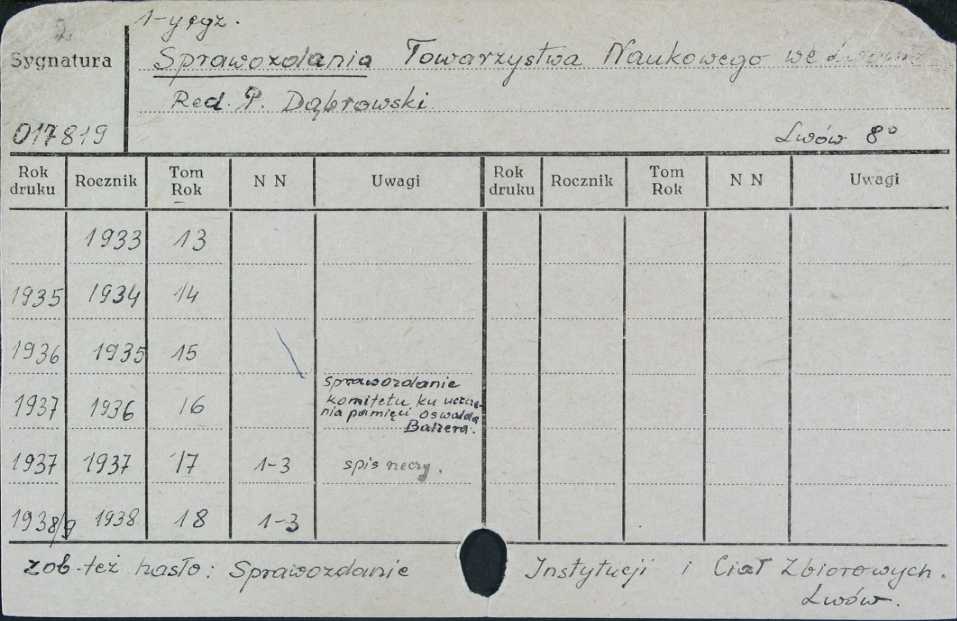 1-y egz.
Sygnatura
Sprawozdania Towarzystwa Naukowego we Lwowie
Red. P. Dąbrowski
017819
Lwów 8°
Rok druku Rocznik Tom Rok N N Uwagi Rok druku Rocznik Tom Rok N N Uwagi
1933 13
1935 1934 14
1936 1935 15
sprawozdanie
komitetu ku uczcze-
1937 1936 16 nia pamięci Oswalda
Balzera.
1937 1937 17 1-3 spis rzeczy.
1938/9 1938 18 1-3
zob. też hasło: Sprawozdanie Instytucji i Ciał Zbiorowych.
Lwów.